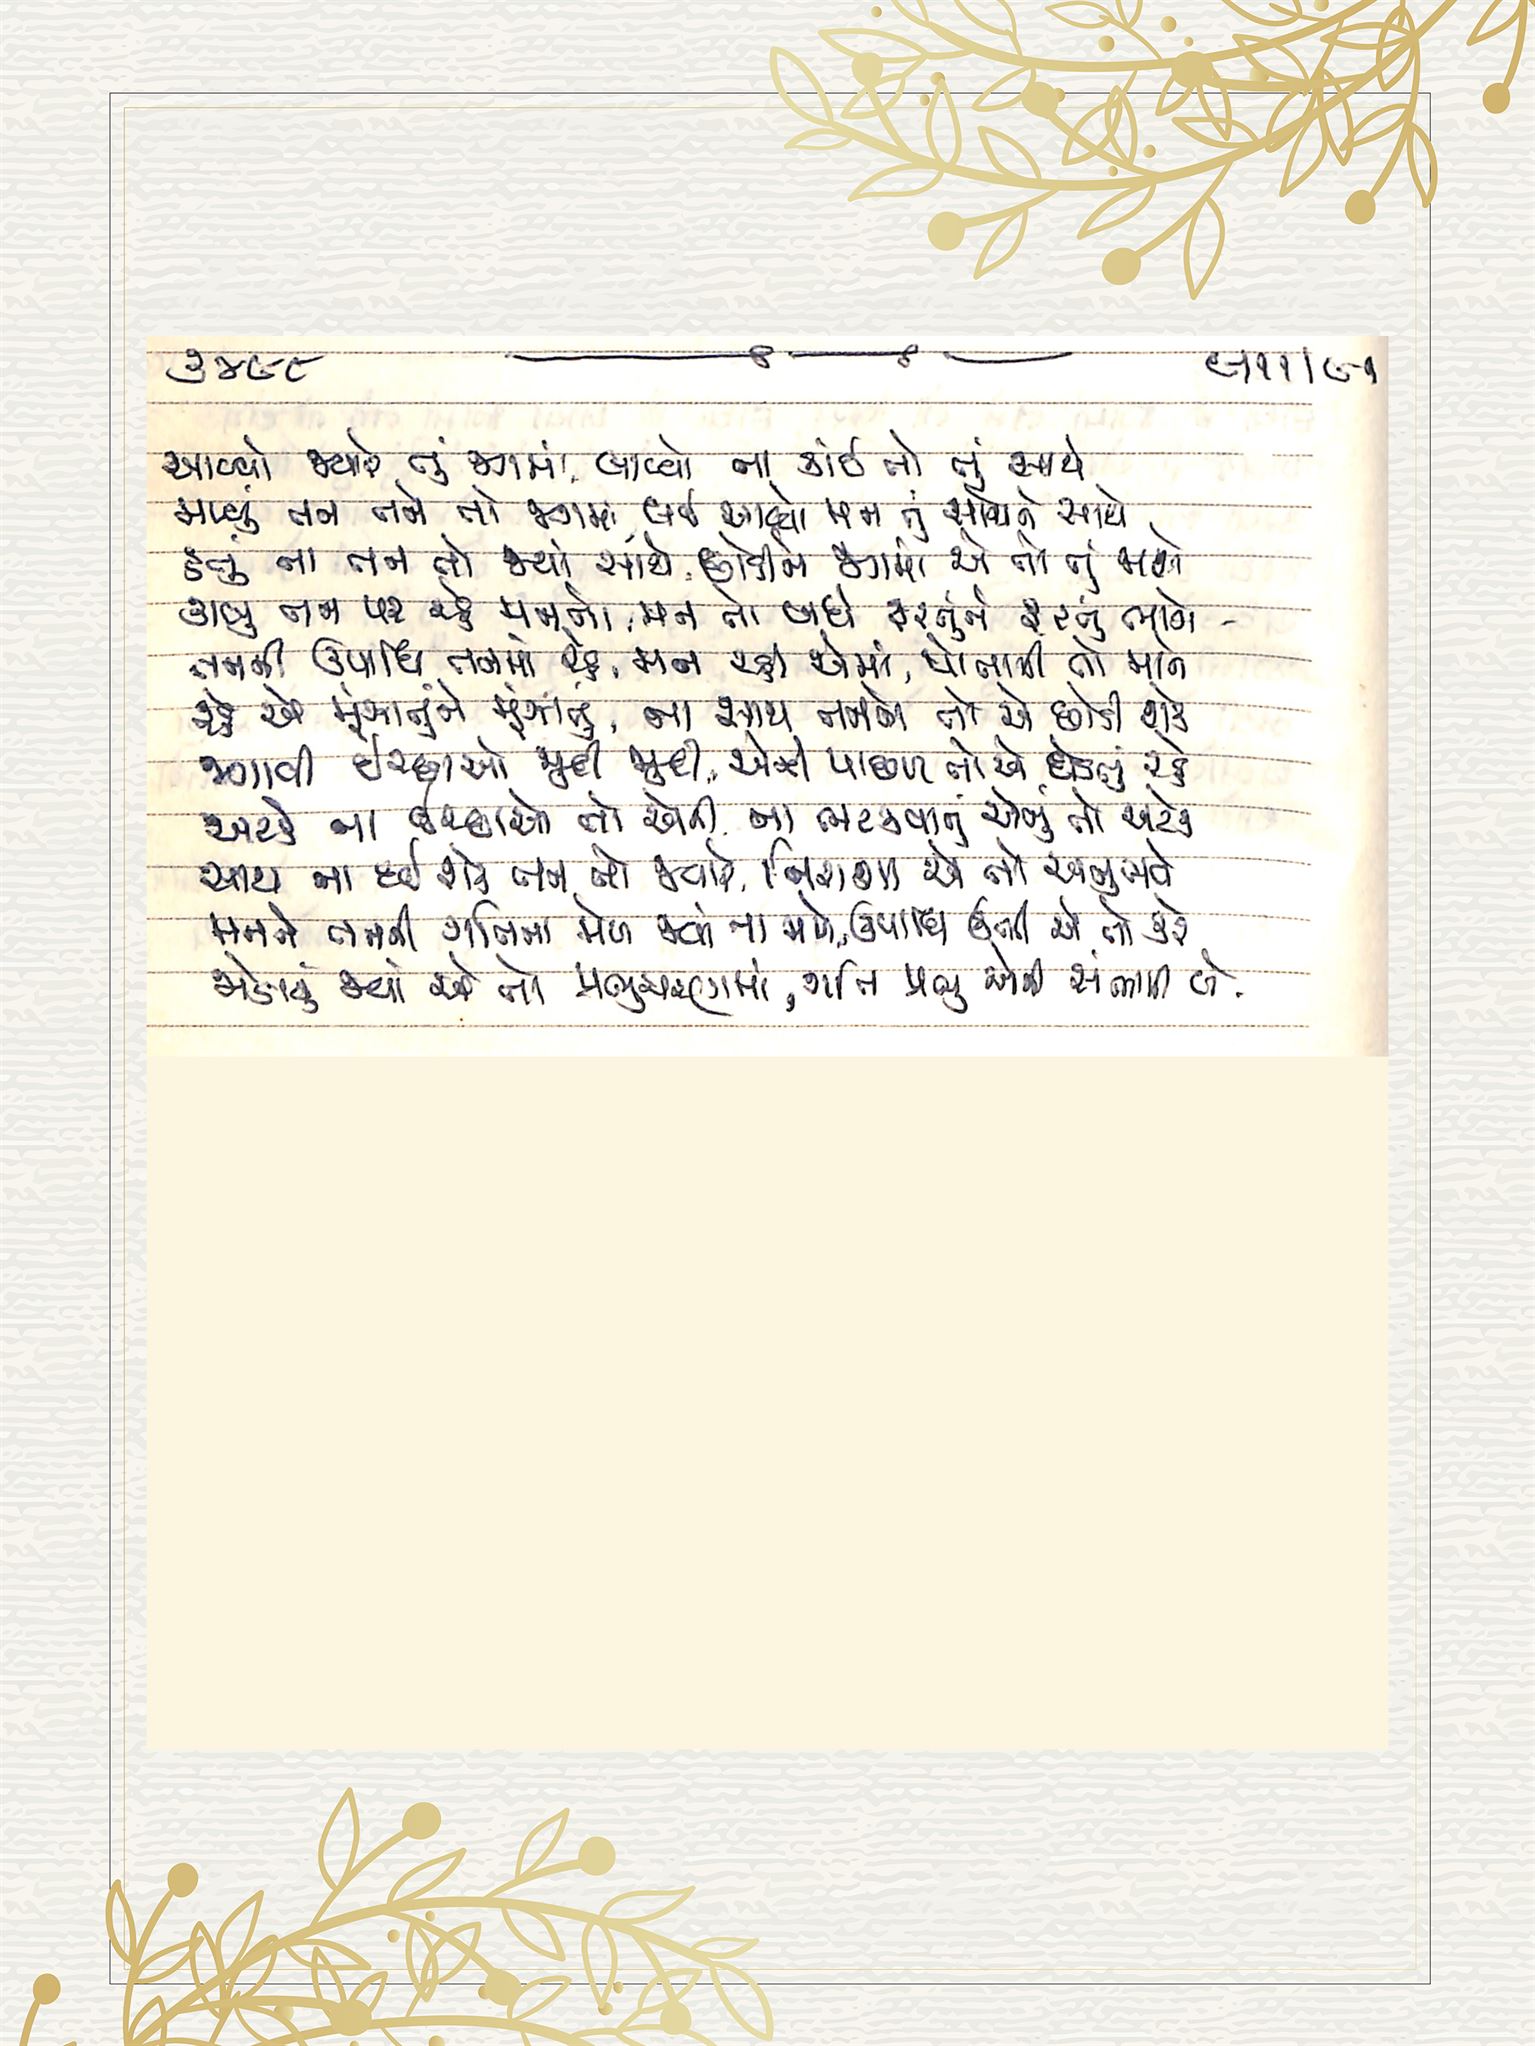 ૩૪૯૯ ૯।૧૧।૯૧
આવ્યો જ્યારે તું જગમાં, લાવ્યો ના કાંઈ તો તું સાથે
મળ્યું તન તને તો જગમાં, લઈ આવ્યો મન તું સાથેને સાથે
હતું ના તન તો જ્યાં સાથે, છોડીને જગમાં એ તો તું જાશે
કાબૂ તન પર રહે મનનો, મન તો બધે ફરતુંને ફરતું ભાગે -
તનની ઉપાધિ તનમાં રહે, મન રહી એમાં, પોતાની તો માને
રહે એ મૂંઝાતુંને મૂંઝાતું, ના સાથ તનનો તો એ છોડી શકે
જગાવી ઇચ્છાઓ જુદી જુદી, એની પાછળ તો એ દોડતું રહે
અટકે ના ઇચ્છાઓ તો એની, ના ભટકવાનું એનું તો અટકે
સાથ ના દઈ શકે તન તો જ્યારે, નિરાશા એ તો અનુભવે
મનને તનની ગતિના મેળ જ્યાં ના મળે, ઉપાધિ ઊભી એ તો કરે
જોડાયું જ્યાં એ તો પ્રભુચરણમાં, ગતિ પ્રભુ એની સંભાળી લે.